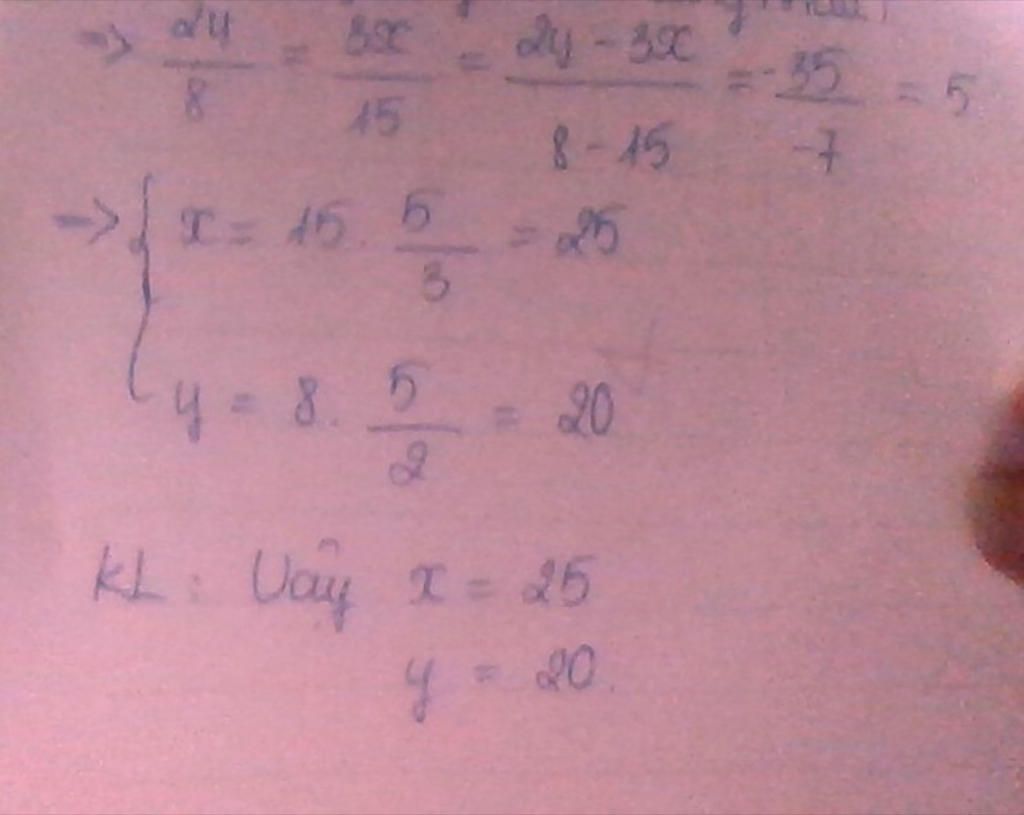 => 2y/8 = 3x/15 = 2y - 3x/8 - 15 = -35/-7 = 5
=> { x = 15. 5/3 = 25
y = 8. 5/2 = 20
KL: Vậy x = 25
y = 20.